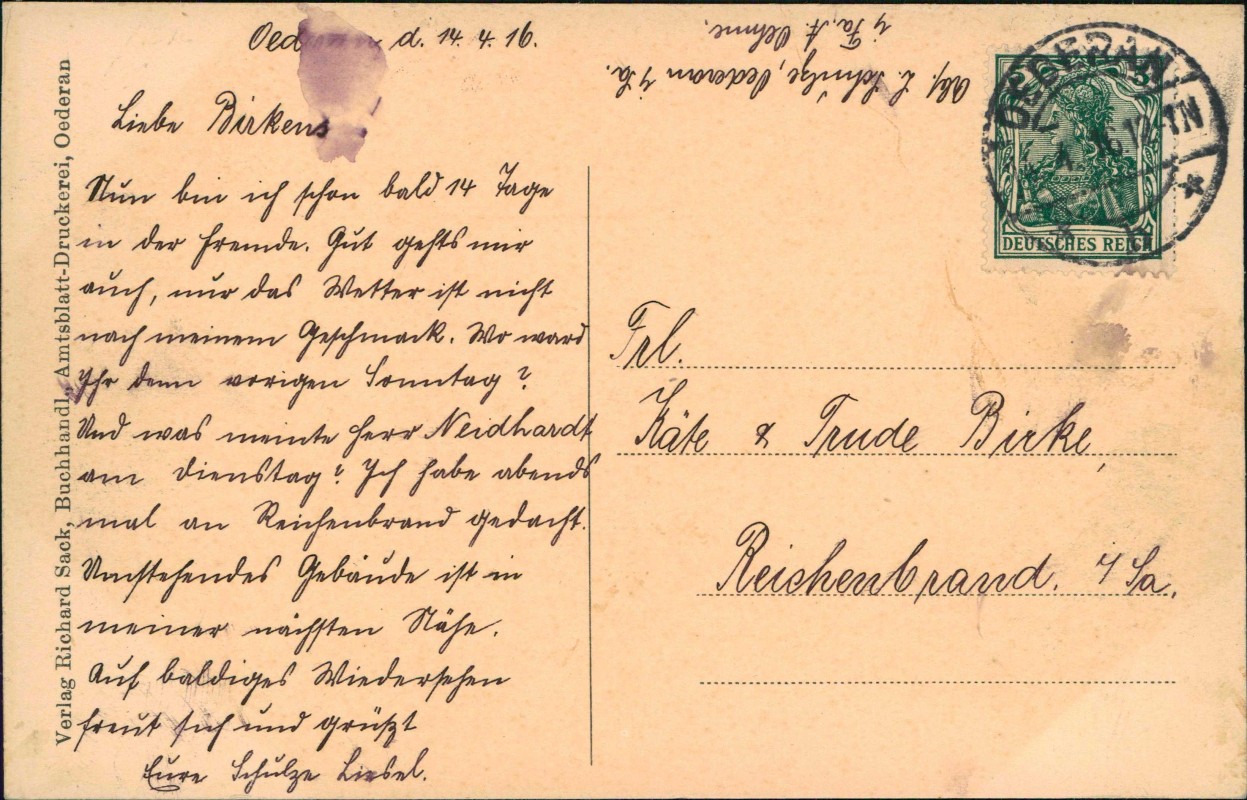 Oederan d. 14. 4. 16.
Liebe Birkens
Nun bin ich schon bald 14 Tage
in der Fremde. Gut gehts mir
auch, nur das Wetter ist nicht
nach meinem Geschmack. Wo ward
Ihr denn vorigen Sonntag?
Und was meinte Herr Neidhardt
am Dienstag? Ich habe abends
mal an Reichenbrand gedacht.
Umstehendes Gebäude ist in
meiner nächsten Nähe.
Auf baldiges Wiedersehen
freut sich und grüßt
Eure Schulze Liesel.
Verlag Richard Sack, Buchhandl., Amtsblatt-Druckerei, Oederan
Abs. L. Schulze, Oederan i/Sa.
i/ Fa. A. Oehme.
OEDERAN
12-1N
DEUTSCHES REICH
5
Frl.
Käte & Trude Birke,
Reichenbrand. i/Sa.